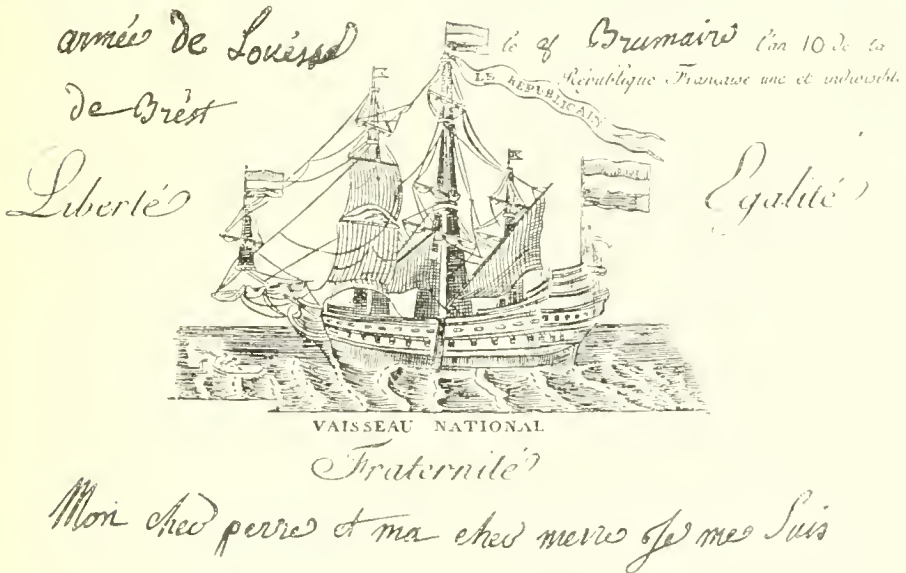 armée de Louésse
le 9 Brumaire l'an 10 de la
République Française une et indivisible
de Brést
LE REPUBLICAIN
Liberté
Egalité
VAISSEAU NATIONAL
Fraternité
Mon cher perre et ma cher merre Je me Suis